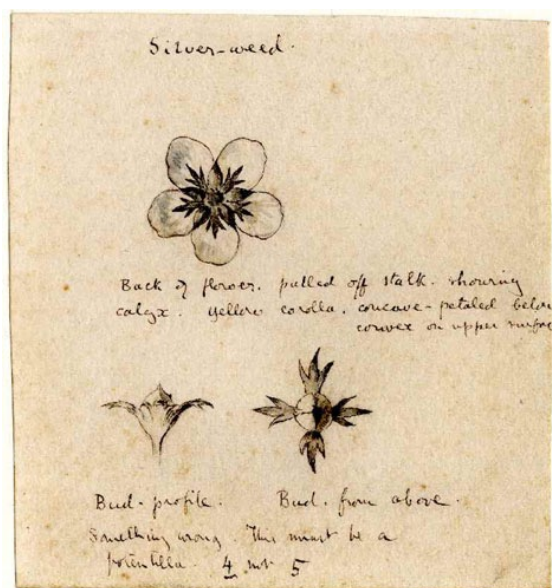 Silver-weed.
Back of flower. pulled off stalk. showing
calyx. yellow corolla. concave-petaled below
convex on upper surface
Bud. profile. Bud. from above.
Something wrong. This must be a
potentilla. 4 not 5